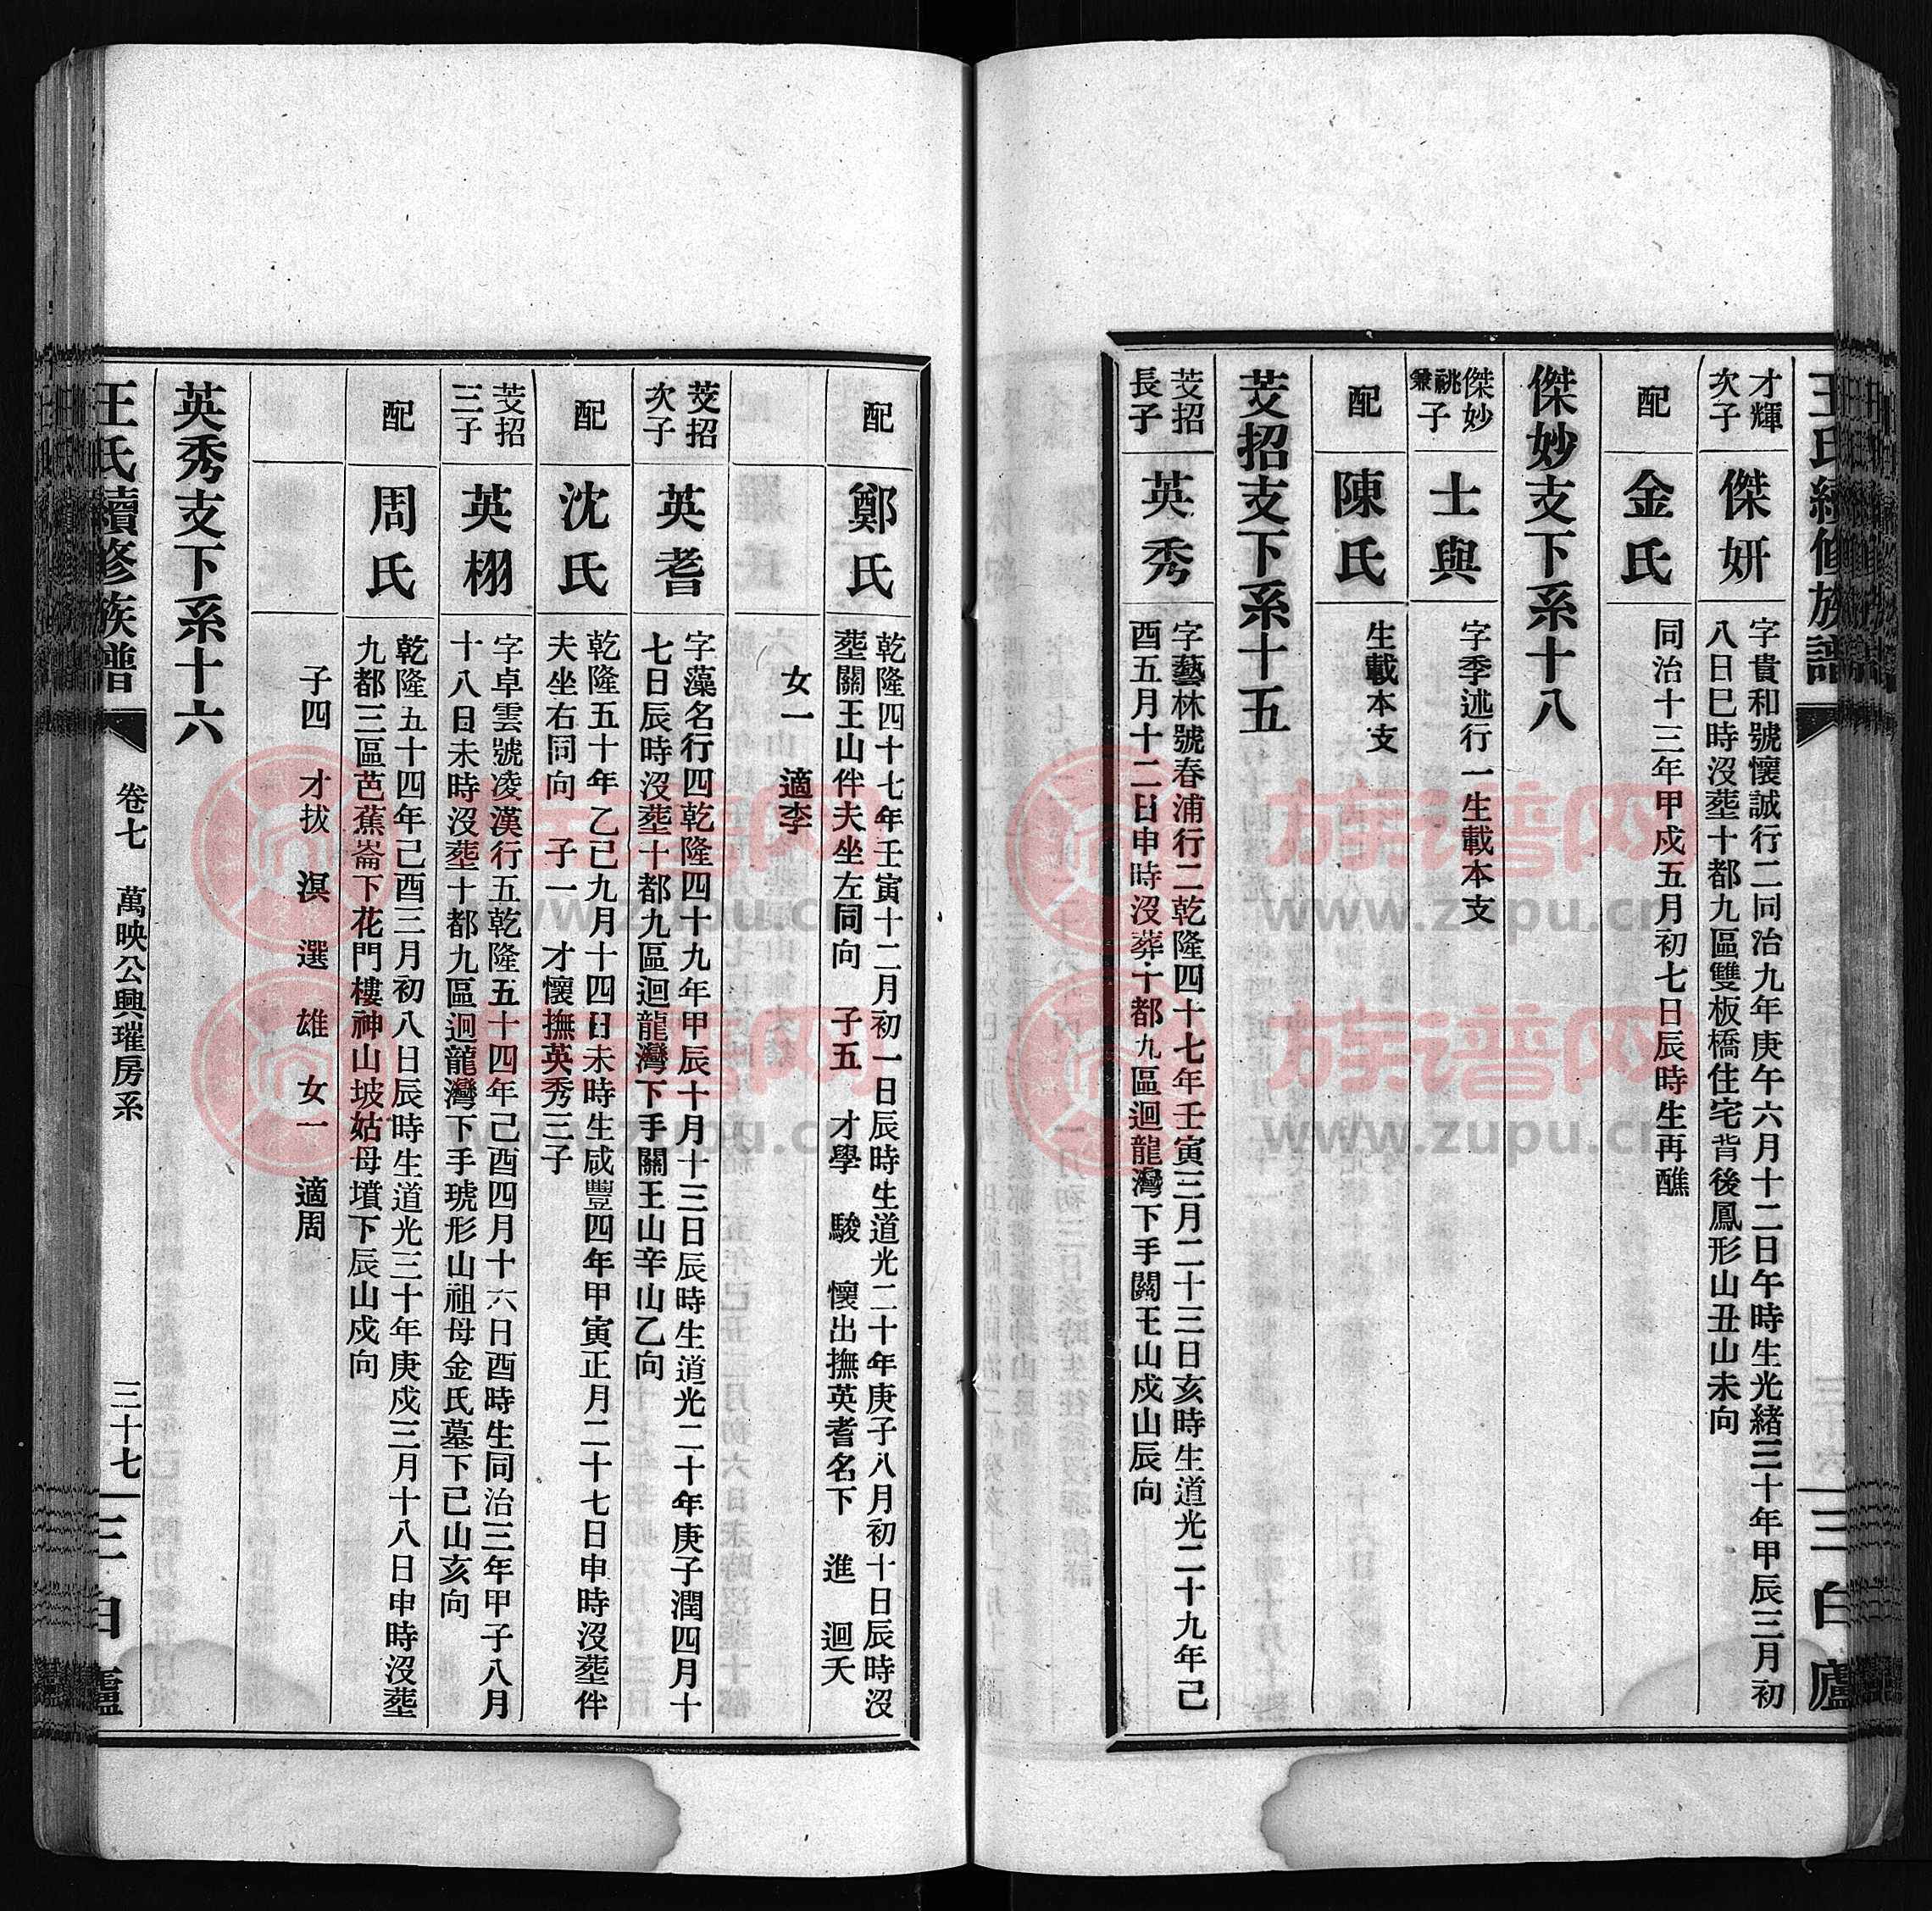 王氏續修族譜
三十六
三白廬
才輝
次子
傑妍
字貴和號懷誠行二同治九年庚午六月十二日午時生光緒三十年甲辰三月初
八日巳時沒塟十都九區雙板橋住宅背後鳳形山丑山未向
配
金氏
同治十三年甲戌五月初七日辰時生再醮
傑妙支下系十八
傑妙
祧子
兼
士與
字季述行一生載本支
配
陳氏
生載本支
芠招支下系十五
芠招
長子
英秀
字藝林號春浦行二乾隆四十七年壬寅三月二十三日亥時生道光二十九年己
酉五月十二日申時沒葬十都九區迴龍灣下手關王山戍山辰向
配
鄭氏
乾隆四十七年壬寅十二月初一日辰時生道光二十年庚子八月初十日辰時沒
塟關王山伴夫坐左同向 子五 才學 駿 懷出撫英耆名下 進 迴夭
女一 適李
芠招
次子
英耆
字藻名行四乾隆四十九年甲辰十月十三日辰時生道光二十年庚子潤四月十
七日辰時沒塟十都九區迴龍灣下手關王山辛山乙向
配
沈氏
乾隆五十年乙巳九月十四日未時生咸豐四年甲寅正月二十七日申時沒塟伴
夫坐右同向 子一 才懷撫英秀三子
芠招
三子
英栩
字卓雲號凌漢行五乾隆五十四年己酉四月十六日酉時生同治三年甲子八月
十八日未時沒塟十都九區迴龍灣下手琥形山祖母金氏墓下己山亥向
配
周氏
乾隆五十四年己酉三月初八日辰時生道光三十年庚戍三月十八日申時沒塟
九都三區芭蕉崙下花門樓神山坡姑母墳下辰山戍向
子四 才拔 溟 選 雄 女一 適周
英秀支下系十六
王氏續修族譜
卷七 萬映公興璀房系
三十七
三白廬
族谱网
www.zupu.cn
族谱网
www.zupu.cn
族谱网
www.zupu.cn
族谱网
www.zupu.cn